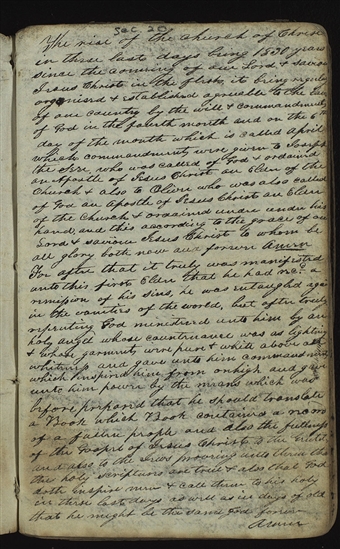 Sec 20
The rise of the Church of Christ
in these last days being 1830 years
since the comeing of our Lord & Saviour
Jesus Christ in the flesh, it being regularly
organised & established agreeable to the Laws
of our country by the will & commandments
of God in the fourth month and on the 6th
day of the month which is called April
which commandments were given to Joseph
the seer who was called of God & ordained
an Apostle of Jesus Christ an Elder of the
Church & also to Oliver who was also called
of God an Apostle of Jesus Christ an Elder
of the Church & ordained under his
hand, and this according to the grace of our
Lord & saviour Jesus Christ to whom be
all glory both now and forever Amen
For after that it truly was manifested
unto this first Elder that he had rec. a
remission of his sins, he was entangled again
in the vanities of the world, but after truly
repenting God ministered unto him by an
holy angel whose countenance was as lightning
& whose garments were pure & white above all
whiteness and gave unto him commandments
which inspired him from on high and gave
unto him power by the means which was
before prepared that he should translate
a Book which Book contained a record
of a fallen people and also the fullness
of the Gospel of Jesus Christ to the Gentiles
and also to the Jews proveing unto them that
the holy scriptures are true & also that God
doth inspire men & call them to his holy
in these last days as well as in days of old
that he might be the same God forever
Amen